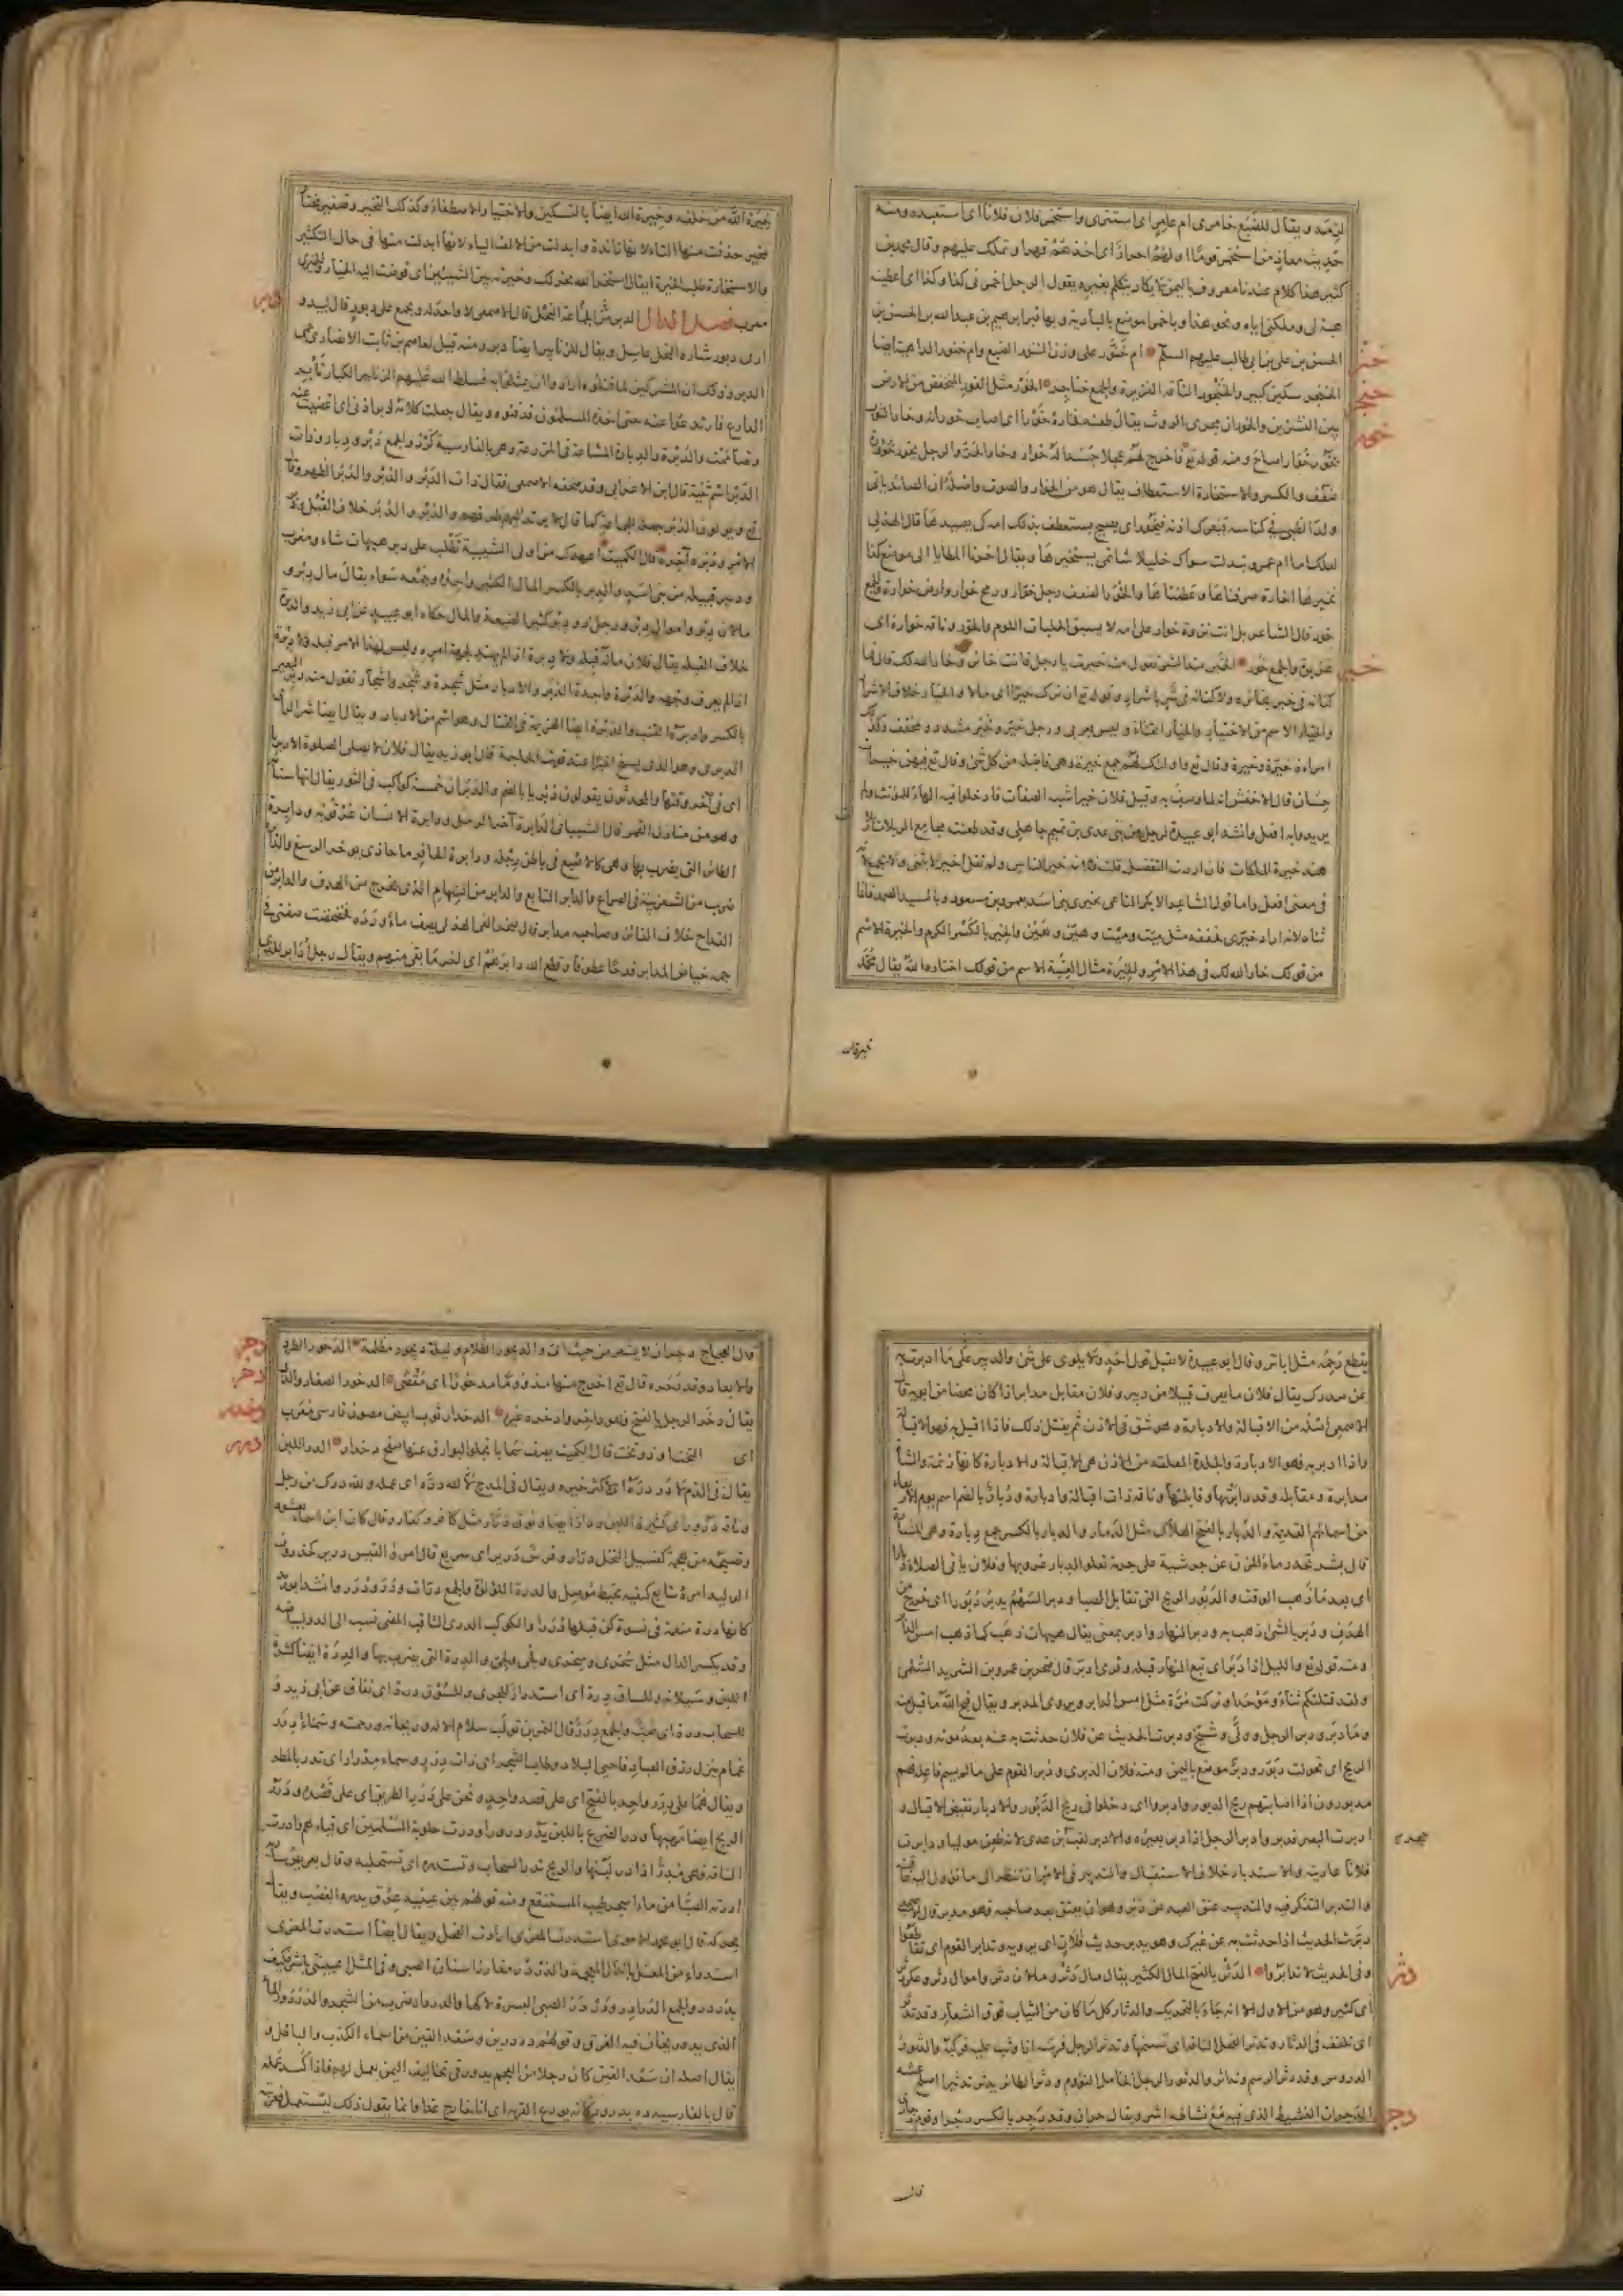 ويقال للضبع خامرى ام عامر اى استترى واستخمر فلان فلانا اى استعبده ومنه
حديث معاذ من استخمر قوما اولهم احرار اى اخذهم قهرا وتملك عليهم وقال محمد بن
كثير هذا كلام عندنا معروف باليمن لا يكاد يتكلم بغيره يقول الرجل اخمرنى كذا وكذا اى اعطنيه
هبة لى وملكنى اياه ونحو هذا وباخمرا موضع بالبادية وبها قبر ابرهيم بن عبد الله بن الحسن بن
الحسن بن على بن ابى طالب عليهم السلم ام خنور على وزن التنور الضبع وام خنور الداهية ايضا
خنر
الخنجر سكين كبير والخنجور الناقة الغزيرة والجمع خناجر الخور مثل الغور المنخفض من الارض
خنجر
بين النشزين والخوران مجرى الروث يقال طعنه فخاره خورا اى اصاب خورانه وخار الثور
خور
يخور خوارا صاح ومنه قوله تع فاخرج لهم عجلا جسدا له خوار وخار الحر والرجل يخور خؤورة
ضعف وانكسر والاستخارة الاستعطاف يقال هو من الخوار والصوت واصله ان الصائد ياتى
ولد الظبى فى كناسه فيعرك اذنه فيخور اى يصيح يستعطف بذلك امه كى يصيدها قال الهذلى
لعلك اما ام عمرو تبدلت سواك خليلا شاتمى يستخيرها ويقال اخرنا المطايا الى موضع كذا
نخيرها اخارة صرفناها وعطفناها والخور الضعف رجل خوار ورمح خوار وارض خوارة والجمع
خور قال الشاعر بل انت نزوة خوار على امة لا يسبق الحلبات اللوم والخور وناقة خوارة اى
غزيرة والجمع خور الخير ضد الشر تقول منه خرت يا رجل فانت خائر وخار الله لك قال فما
خير
كنانة فى خير بخائرة ولا كنانة فى شر باشرار وقوله تع ان ترك خيرا اى مالا والخيار خلاف الاشرار
والخيار الاسم من الاختيار والخيار القثاء وليس بعربى ورجل خير وخير مشدد ومخفف وكذلك
امراة خيرة وخيرة وقال تع واولئك لهم الخيرات جمع خيرة وهى الفاضلة من كل شئ وقال تع فيهن خيرات
حسان قال الاخفش انه لما وصف به وقيل فلان خير اشبه الصفات فادخلوا فيه الهاء للمؤنث ولم
يريدوا به افعل وانشد ابو عبيدة لرجل من بنى عدى بن تميم جاهلى ولقد طعنت مجامع الربلات
هند خيرة الملكات فان اردت التفضيل قلت فلانة خير الناس ولم تقل خيرة لا يثنى ولا يجمع لانه
فى معنى افعل واما قول الشاعر الا بكر الناعى بخيرى بنى اسد بعمرو بن مسعود وبالسيد الصمد فانما
ثناه لانه اراد خيرى فخففه مثل ميت وميت وهين وهين والخير بالكسر الكرم والخيرة الاسم
من قولك خار الله لك فى هذا الامر والخيرة مثال العنبة الاسم من قولك اختاره الله يقال محمد
خيرة الله
خيرة الله من خلقه وخيرة الله ايضا بالتسكين والاختيار الاصطفاء وكذلك التخير وتصغير مختار
مخير حذفت منها التاء لانها زائدة وابدلت من الالف الياء لانها ابدلت منها فى حال التكثير
والاستخارة طلب الخيرة يقال استخر الله يخر لك وخيرته بين الشيئين اى فوضت اليه الخيار والخيرى
معرب فصل الدال الدبر جماعة النحل قال الاصمعى لا واحد له ويجمع على دبور قال لبيد
دبر
ارى دبور شاره النحل عاسل ويقال للزنابير ايضا دبر ومنه قيل لعاصم بن ثابت الانصارى حمى
الدبر وذلك ان المشركين لما قتلوه ارادوا ان يمثلوا به فسلط الله عليهم الزنابير الكبار تابر
الدارع فارتدعوا عنه حتى اخذه المسلمون فدفنوه ويقال جعلت كلامه دبر اذنى اى اغضيت عنه
وتصاممت والدبرة والدبار المشارة فى المزرعة وهى بالفارسية كرد والجمع دبر ودبار وذات
الدبر اسم ثنية قال ابن الاعرابى وقد صحفه الاصمعى فقال ذات الدير والدبر والدبر الظهر وقال
تع ويولون الدبر جعله للجماعة كما قال لا يرتد اليهم طرفهم والدبر والدبر خلاف القبل ودبر
الامر ودبره آخره قال الكميت اعهدك من اولى الشبيبة تطلب على دبر هيهات شاء ومغرب
ودبير قبيلة من بنى اسد والدبر بالكسر المال الكثير واحده وجمعه سواء يقال مال دبر و
مالان دبر واموال دبر ورجل ذو دبر كثير الضيعة والمال حكاه ابو عبيد عن ابى زيد والدبرة
خلاف القبلة يقال فلان ماله قبلة ولا دبرة اذا لم يهتد لجهة امره وليس لهذا الامر قبلة ولا دبرة
اذا لم يعرف وجهه والدبرة واحدة الدبر والادبار مثل شجرة وشجر واشجار تقول منه دبر البعير
بالكسر وادبره القتب والدبرة ايضا الهزيمة فى القتال وهو اسم من الادبار ويقال ايضا شر الراى
الدبرى وهو الذى يسنح اخيرا عند فوت الحاجة قال ابو زيد يقال فلان لا يصلى الصلوة الا دبريا
اى فى آخر وقتها والمحدثون يقولون دبريا بالضم والدبران خمسة كواكب فى الثور يقال انها سنامه
وهو من منازل القمر قال الشيبانى الدابرة آخر الرمل ودابرة الانسان عرقوبه ودابرة
الطائر التى يضرب بها وهى كالاصبع فى باطن رجله ودابرة الحافر ما حاذى موخر الرسغ والدابرة
ضرب من الشغزبية فى الصراع والدابر التابع والدابر من السهام الذى يخرج من الهدف والدابر من
القداح خلاف الفائز وصاحبه مدابر قال صخر الغى الهذلى يصف ماء ورده فخضخضت صفنى فى
جمه خياض المدابر قدحا عطوفا وقطع الله دابرهم اى آخر من بقى منهم ويقال رجل ادابر للذى
يقطع رحمه مثل اباتر وقال ابو عبيدة لا يقبل قول احد ولا يلوى على شئ والدبير على ما ادبرت به
عن صدرك يقال فلان ما يعرف قبيلا من دبير وفلان مقابل مدابر اذا كان محضا من ابويه قال
الاصمعى اصله من الاقبالة والادبارة وهو شق فى الاذن ثم يفتل ذلك فاذا اقبل به فهو الاقبالة
واذا ادبر به فهو الادبارة والجلدة المعلقة من الاذن هى الاقبالة والادبارة كانها زنمة والشاة
مدابرة ومقابلة وقد دابرتها وقابلتها وناقة ذات اقبالة وادبارة ودبار بالضم اسم يوم الاربعاء
من اسمائهم القديمة والدبار بالفتح الهلاك مثل الدمار والدبار بالكسر جمع دبارة وهى المشارة
قال بشر تحدر ماء المزن عن جرشية على جربة تعلو الدبار غروبها وفلان ياتى الصلاة دبارا
اى بعد ما ذهب الوقت والدبور الريح التى تقابل الصبا ودبر السهم يدبر دبورا اى خرج من
الهدف ودبر بالشئ ذهب به ودبر النهار وادبر بمعنى يقال هيهات ذهب كما ذهب امس الدابر
ومنه قوله تع والليل اذا دبر اى تبع النهار قبله وقرئ ادبر قال صخر بن عمرو بن الشريد السلمى
ولقد قتلتكم ثناء وموحدا وتركت مرة مثل امس الدابر ويروى المدبر ويقال قبح الله ما قبل منه
وما دبر ودبر الرجل وولى وشيخ ودبرت الحديث عن فلان حدثت به عنه بعد موته ودبرت
الريح اى تحولت دبورا ودبر موضع باليمن ومنه فلان الدبرى ودبر القوم على ما لم يسم فاعله فهم
مدبورون اذا اصابتهم ريح الدبور وادبروا اى دخلوا فى ريح الدبور والادبار نقيض الاقبال و
ادبرت البعير فدبر وادبر الرجل اذا دبر بعيره والادبر لقب حجر بن عدى
فلانا عاديته والاستدبار خلاف الاستقبال والتدبير فى الامر ان تنظر الى ما تؤول اليه عاقبته
والتدبر التفكر فيه والتدبير عتق العبد عن دبر وهو ان يعتق بعد صاحبه فهو مدبر قال الاصمعى
دبرت الحديث اذا حدثت به عن غيرك وهو يدبر حديث فلان اى يرويه وتدابر القوم اى تقاطعوا
وفى الحديث لا تدابروا الدثر بالفتح المال الكثير يقال مال دثر ومالان دثر واموال دثر وعكر دثر
دثر
اى كثير وهو من الاول الا انه جاء بالتحريك والدثار كل ما كان من الثياب فوق الشعار وقد تدثر
اى تلفف فى الدثار وتدثر الفحل الناقة اى تسنمها وتدثر الرجل فرسه اذا وثب عليه فركبه والدثور
الدروس وقد دثر الرسم وتداثر والدثور الرجل الخامل النؤوم ودثر الطائر تدثيرا اصلح عشه
الدجران النشيط الذى فيه مع نشاطه اشر ويقال حيران وقد دجر بالكسر دجرا وقوم دجارى
دجر
قال
قال العجاج دجران لا يشعر من حيث اتى والديجور الظلام وليلة ديجور مظلمة الدحور الطرد
دجر
والابعاد وقد دحره قال تع اخرج منها مذؤوما مدحورا اى مقصى الدخور الصغار والذل
دحر
يقال دخر الرجل بالفتح فهو داخر وادخره غيره الدخدار ثوب ابيض مصون فارسى معرب
دخدر
اى التخت اوذو تخت قال الكميت يصف سحابا تجلو البوارق عنها صفح دخدار الدر اللبن
درر
يقال فى الذم لا در دره اى لا كثر خيره ويقال فى المدح لله دره اى عمله ولله درك من رجل
وناقة درور اى كثيرة اللبن ودار ايضا ونوق درار مثل كافر وكفار
الوليد امره تتابع كفيه بخيط موصل والدرة اللؤلؤة والجمع در ودرات ودرر وانشد ابو زيد
كانها درة منعمة فى نسوة كن قبلها دررا والكوكب الدرى الثاقب المضئ نسب الى الدر لبياضه
وقد يكسر الدال مثل سخرى وسخرى ولجى ولجى والدرة التى يضرب بها والدرة ايضا كثرة
اللبن وسيلانه وللساق درة اى استدرار للجرى وللسوق درة اى نفاق عن ابى زيد و
للسحاب درة اى صب والجمع درر قال النمر بن تولب سلام الاله وريحانه ورحمته وسماء درر
غمام ينزل رزق العباد فاحيا البلاد وطاب الشجر اى ذات درر وسماء مدرار اى تدر بالمطر
ويقال هما على درر واحد بالفتح اى على قصد واحد ونحن على درر الطريق اى على قصده ودرر
الريح ايضا مهبها ودر الضرع باللبن يدر درورا ودرت حلوبة المسلمين اى فيئهم وادرت
الناقة فهى مدر اذا در لبنها والريح تدر السحاب وتستدره اى تستحلبه
ادرته الصبا من ماء اسجر طيب المستنقع ومنه قولهم بين عينيه عرق يدره الغضب ويقال
يحركه قال ابو عمرو الاموى استدرت المعزى ارادت الفحل ويقال ايضا استذرت المعزى
استذراء من المعتل بالذال المعجمة والدردر مغارز اسنان الصبى وفى المثل اعييتنى باشر فكيف
بدردر والجمع الدرادر ودردر الصبى البسرة لاكها والدردار ضرب من الشجر والدردور الماء
الذى يدور يخاف فيه الغرق وقولهم دهدرين وسعد القين من اسماء الكذب والباطل و
يقال اصله ان سعد القين كان رجلا من العجم يدور فى مخاليف اليمن يعمل لهم فاذا كسد عمله